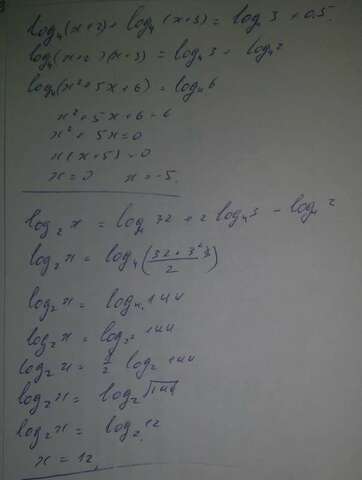 log₄(x+2) + log₄(x+3) = log₄3 + 0,5
log₄(x+2)(x+3) = log₄3 + log₄2
log₄(x²+5x+6) = log₄6
x²+5x+6=6
x²+5x=0
x(x+5)=0
x=0 x=-5.
log₂x = log₄32 + 2log₄3 - log₄2
log₂x = log₄(32+3²/2)
log₂x = log₄144
log₂x = log₂² 144
log₂x = 1/2 log₂144
log₂x = log₂√144
log₂x = log₂12
x = 12